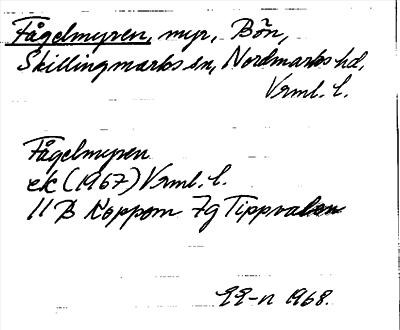 Fågelmyren, myr, Bön,
Skillingmarks sn, Nordmarks hd,
Vrml. l.
Fågelmyren
ek (1967) Vrml. l.
11 B Koppom 7g Tippvalen
1968.